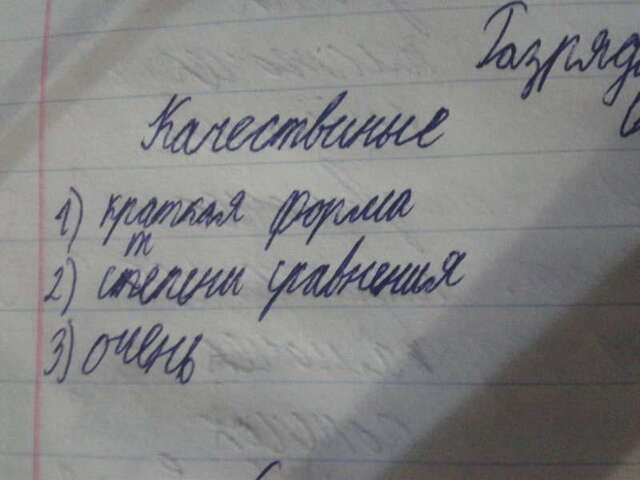 Разряд
Качествиные
1) краткая форма
2) степени сравнения
3) очень